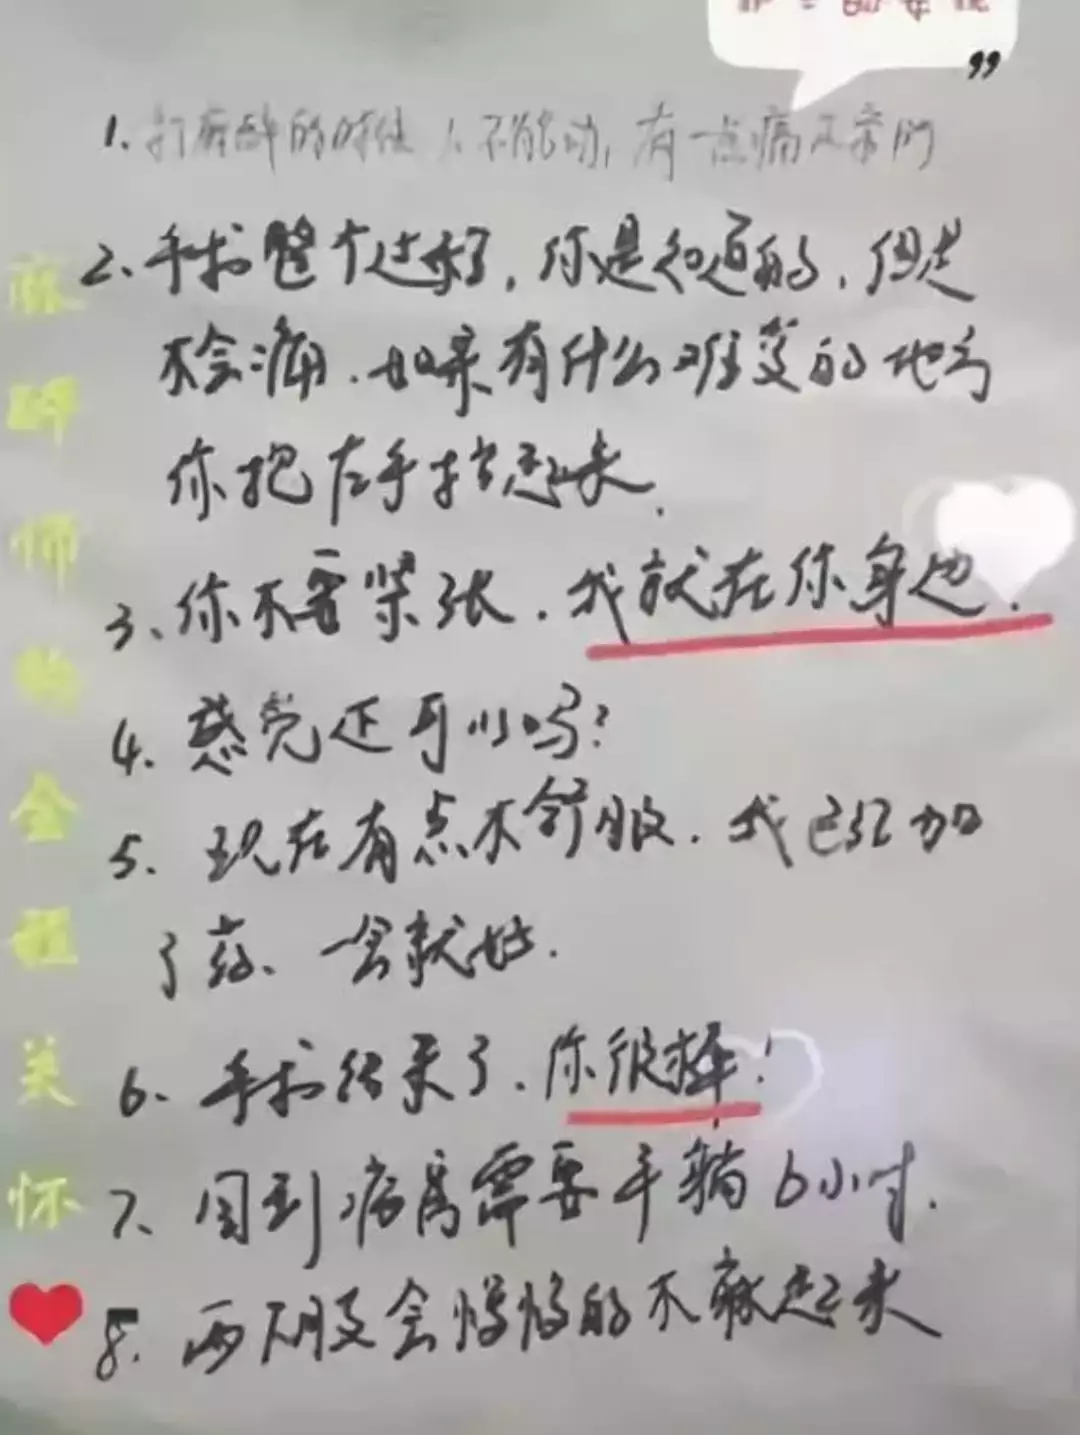 99
1.打麻醉的时候 不能动,有一点痛
2、手术整个过程,你是知道的,但是
不会痛.如果有什么难受的地方
你把左手抬起来.
3、你不要紧张.我就在你身边.
4.感觉还可以吗?
5.现在有点不舒服.我已经加
了药、一会就好.
6、手术结束了.你很棒!
7、回到病房需要平躺6小时.
8.两下肢会慢慢的不麻起来
麻醉师的全程关怀